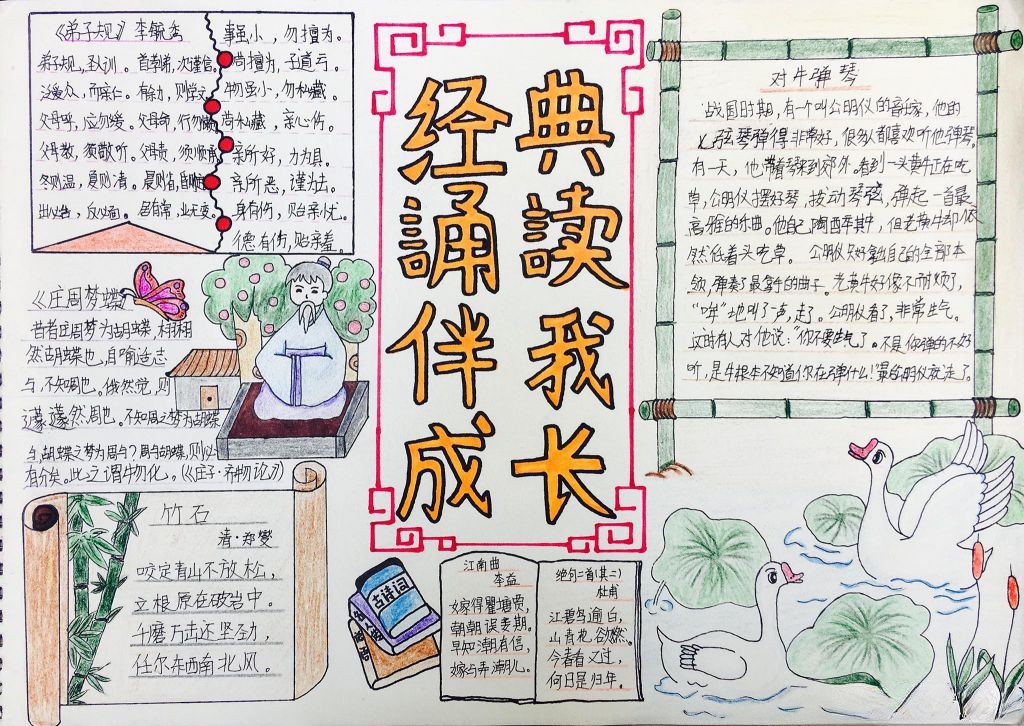 《弟子规》李毓秀
弟子规,圣人训。首孝弟,次谨信。
泛爱众,而亲仁。有余力,则学文。
父母呼,应勿缓。父母命,行勿懒。
父母教,须敬听。父母责,须顺承。
冬则温,夏则凊。晨则省,昏则定。
出必告,反必面。居有常,业无变。
事虽小,勿擅为。
尚擅为,子道亏。
物虽小,勿私藏。
尚私藏,亲心伤。
亲所好,力为具。
亲所恶,谨为去。
身有伤,贻亲忧。
德有伤,贻亲羞。
《庄周梦蝶》
昔者庄周梦为胡蝶,栩栩
然胡蝶也,自喻适志
与,不知周也。俄然觉,则
蘧蘧然周也。不知周之梦为胡蝶
与,胡蝶之梦为周与?周与胡蝶,则必
有分矣。此之谓物化。(《庄子·齐物论》)
竹石
清·郑燮
咬定青山不放松,
立根原在破岩中。
千磨万击还坚劲,
任尔东西南北风。
经典
诵读
伴我
成长
古诗词
江南曲
李益
嫁得瞿塘贾,
朝朝误妾期。
早知潮有信,
嫁与弄潮儿。
绝句二首(其二)
杜甫
江碧鸟逾白,
山青花欲燃。
今春看又过,
何日是归年。
对牛弹琴
战国时期,有一个叫公明仪的音乐家,他的
七弦琴弹得非常好,很多人都喜欢听他弹琴。
有一天,他带着琴来到郊外,看到一头黄牛正在吃
草,公明仪摆好琴,拨动琴弦,弹起一首最
高雅的乐曲。他自己陶醉其中,但老黄牛却依
然低着头吃草。公明仪只好拿出自己的全部本
领,弹奏了最拿手的曲子。老黄牛好像不耐烦了,
“哞”地叫了一声,走了。公明仪看了,非常生气。
这时有人对他说:“你不要生气了。不是你弹的不好
听,是牛根本不知道你在弹什么!”最后公明仪就走了。